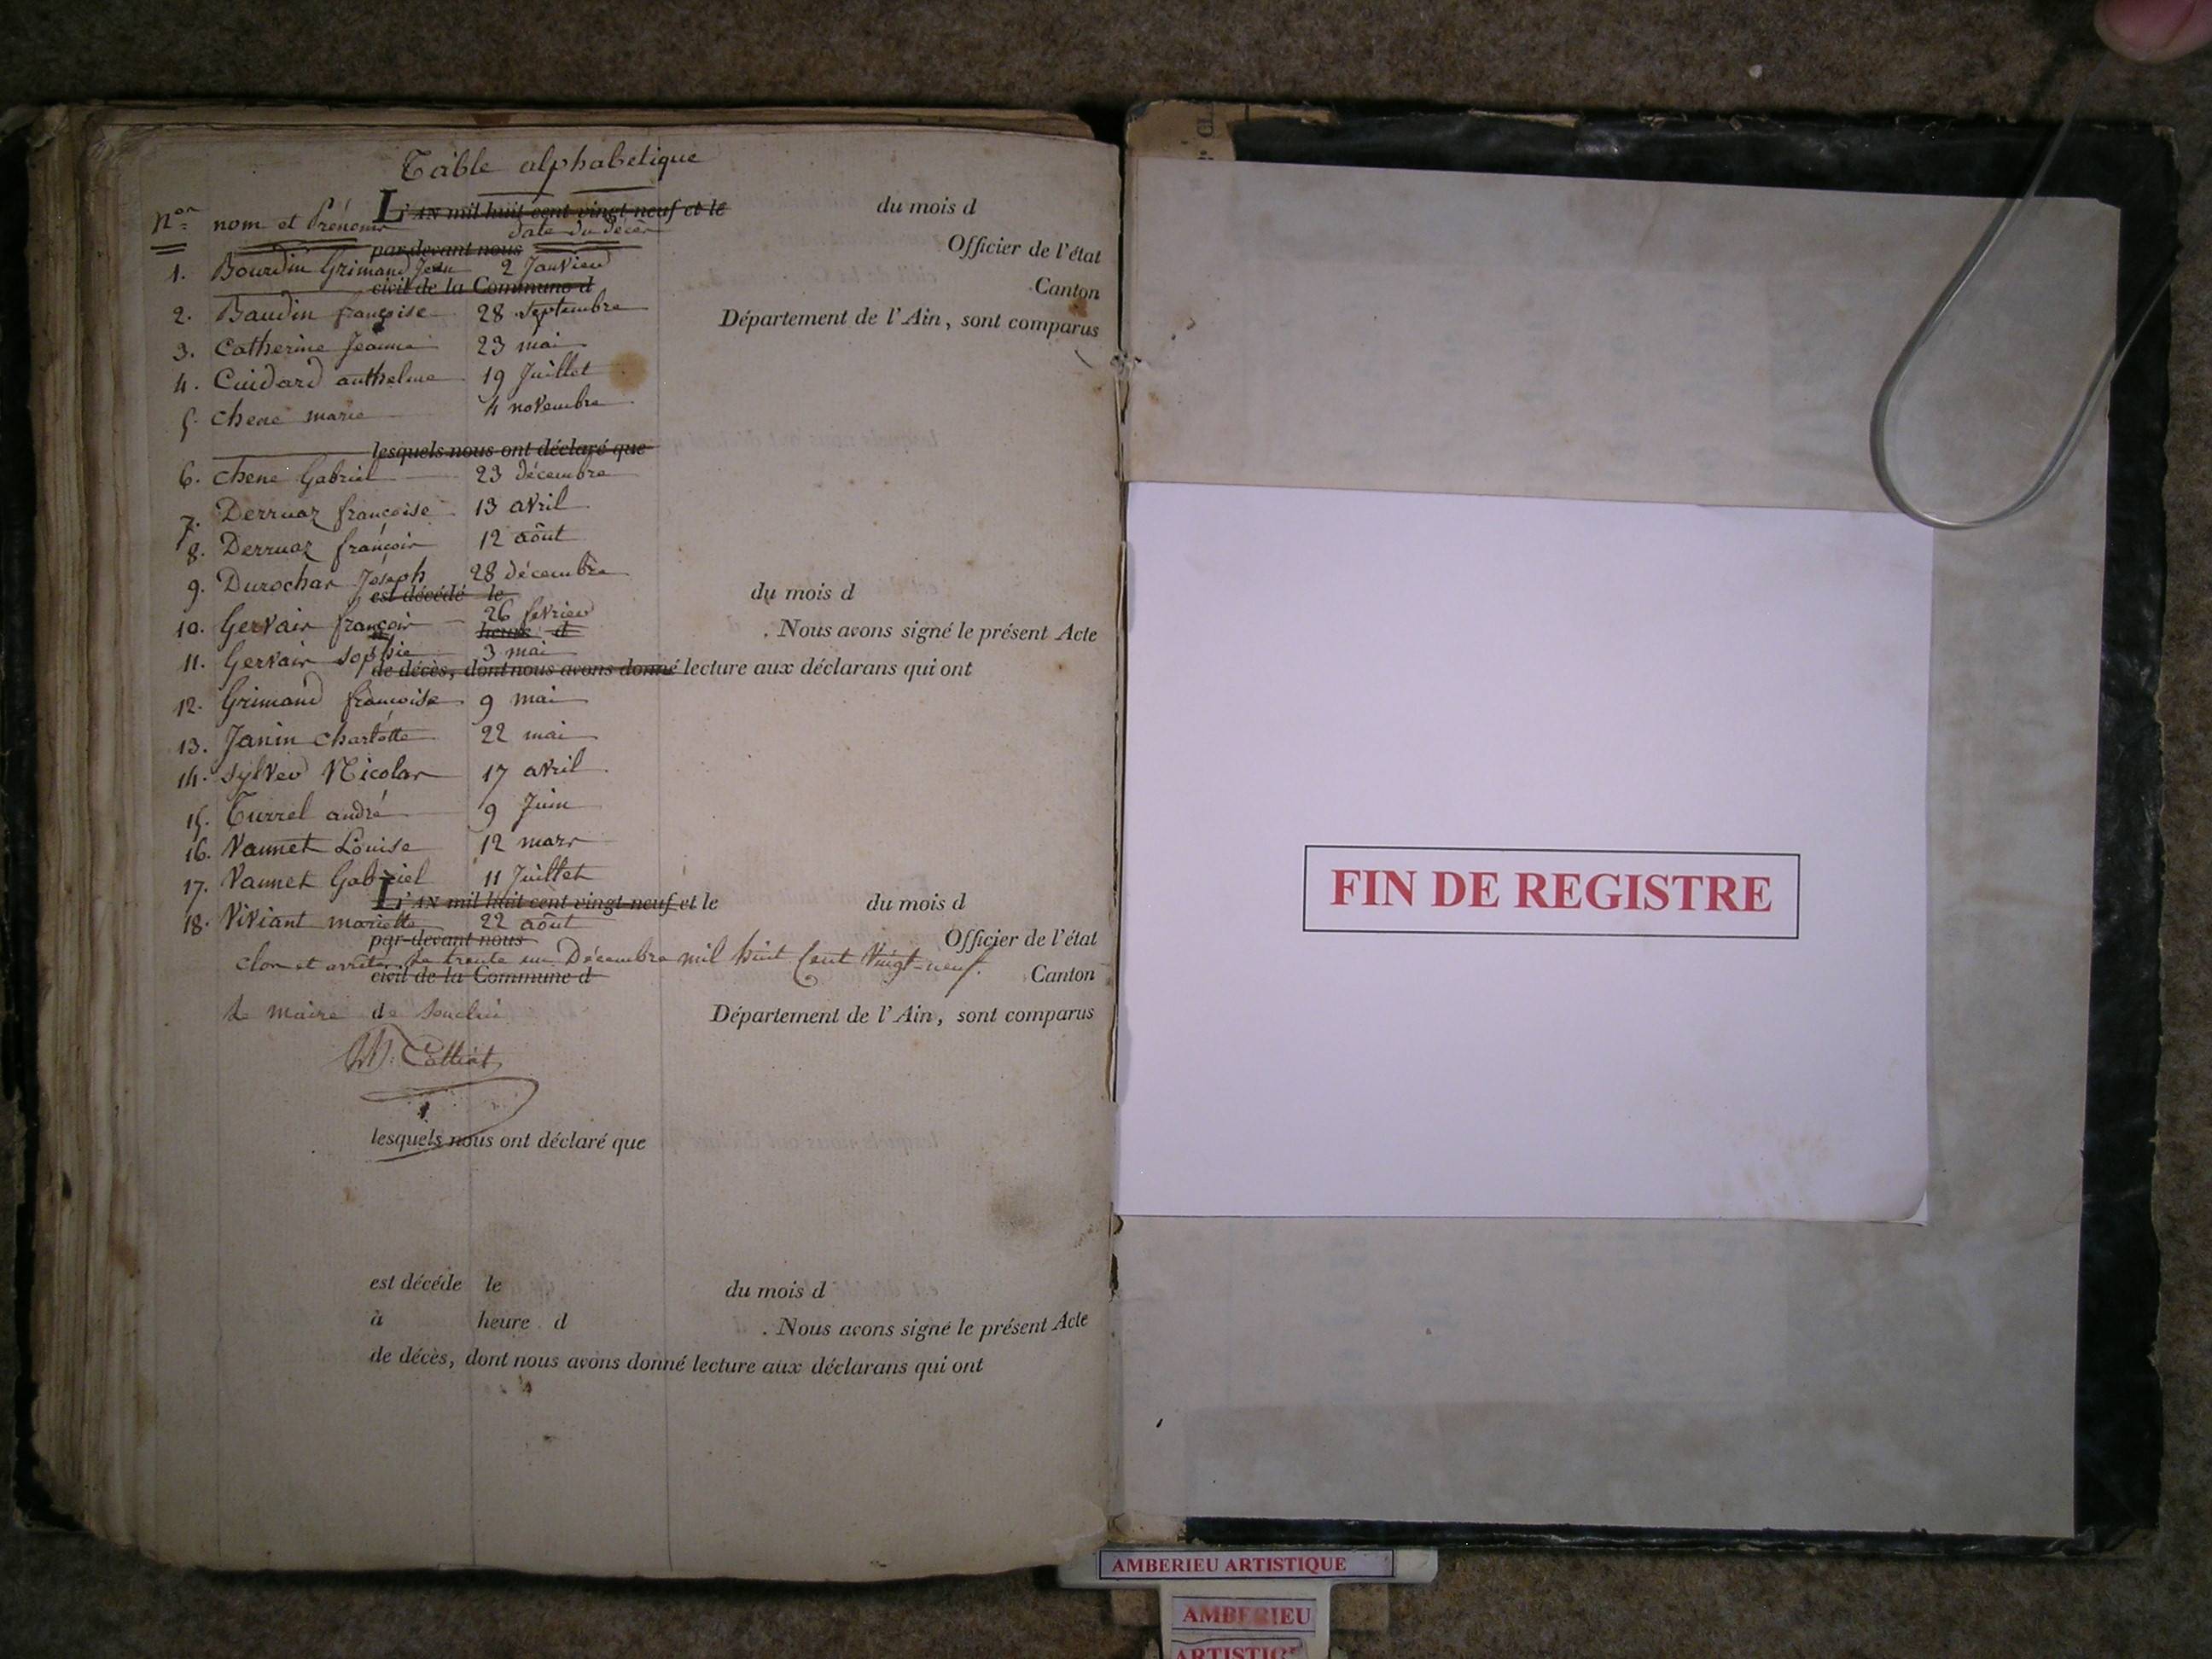 Table alphabétique
L'AN mil huit cent vingt-neuf et le du mois d
Nos nom et Prénoms date du décès
par-devant nous Officier de l'état
1. Bourdin Grimand Jean 2 Janvier
civil de la Commune d Canton
2. Baudin françoise 28 Septembre
Département de l'Ain, sont comparus
3. Catherine Jeanne 23 mai
4. Cuidard anthelme 19 Juillet
5. Chene marie 4 novembre
lesquels nous ont déclaré que
6. Chene Gabriel 23 décembre
7. Derruaz françoise 13 avril
8. Derruaz françois 12 août
9. Durochar Joseph 28 décembre
est décédé le du mois d
10. Gervais françois 26 fevrier
heure d . Nous avons signé le présent Acte
11. Gervais Sophie 3 mai
de décès, dont nous avons donné lecture aux déclarans qui ont
12. Grimand françoise 9 mai
13. Janin Charlotte 22 mai
14. Sylves Nicolas 17 avril
15. Turrel andré 9 Juin
16. Vannet Louise 12 mars
17. Vannet Gabriel 11 Juillet
L'AN mil huit cent vingt-neuf et le du mois d
18. Viviant mariette 22 août
par-devant nous Officier de l'état
clos et arrêté le trente un Décembre mil huit Cent Vingt-neuf.
civil de la Commune d Canton
Le maire de Souclin Département de l'Ain, sont comparus
lesquels nous ont déclaré que
est décéde le du mois d
à heure d . Nous avons signé le présent Acte
de décès, dont nous avons donné lecture aux déclarans qui ont
FIN DE REGISTRE
AMBERIEU ARTISTIQUE
AMBERIEU
ARTISTIQUE